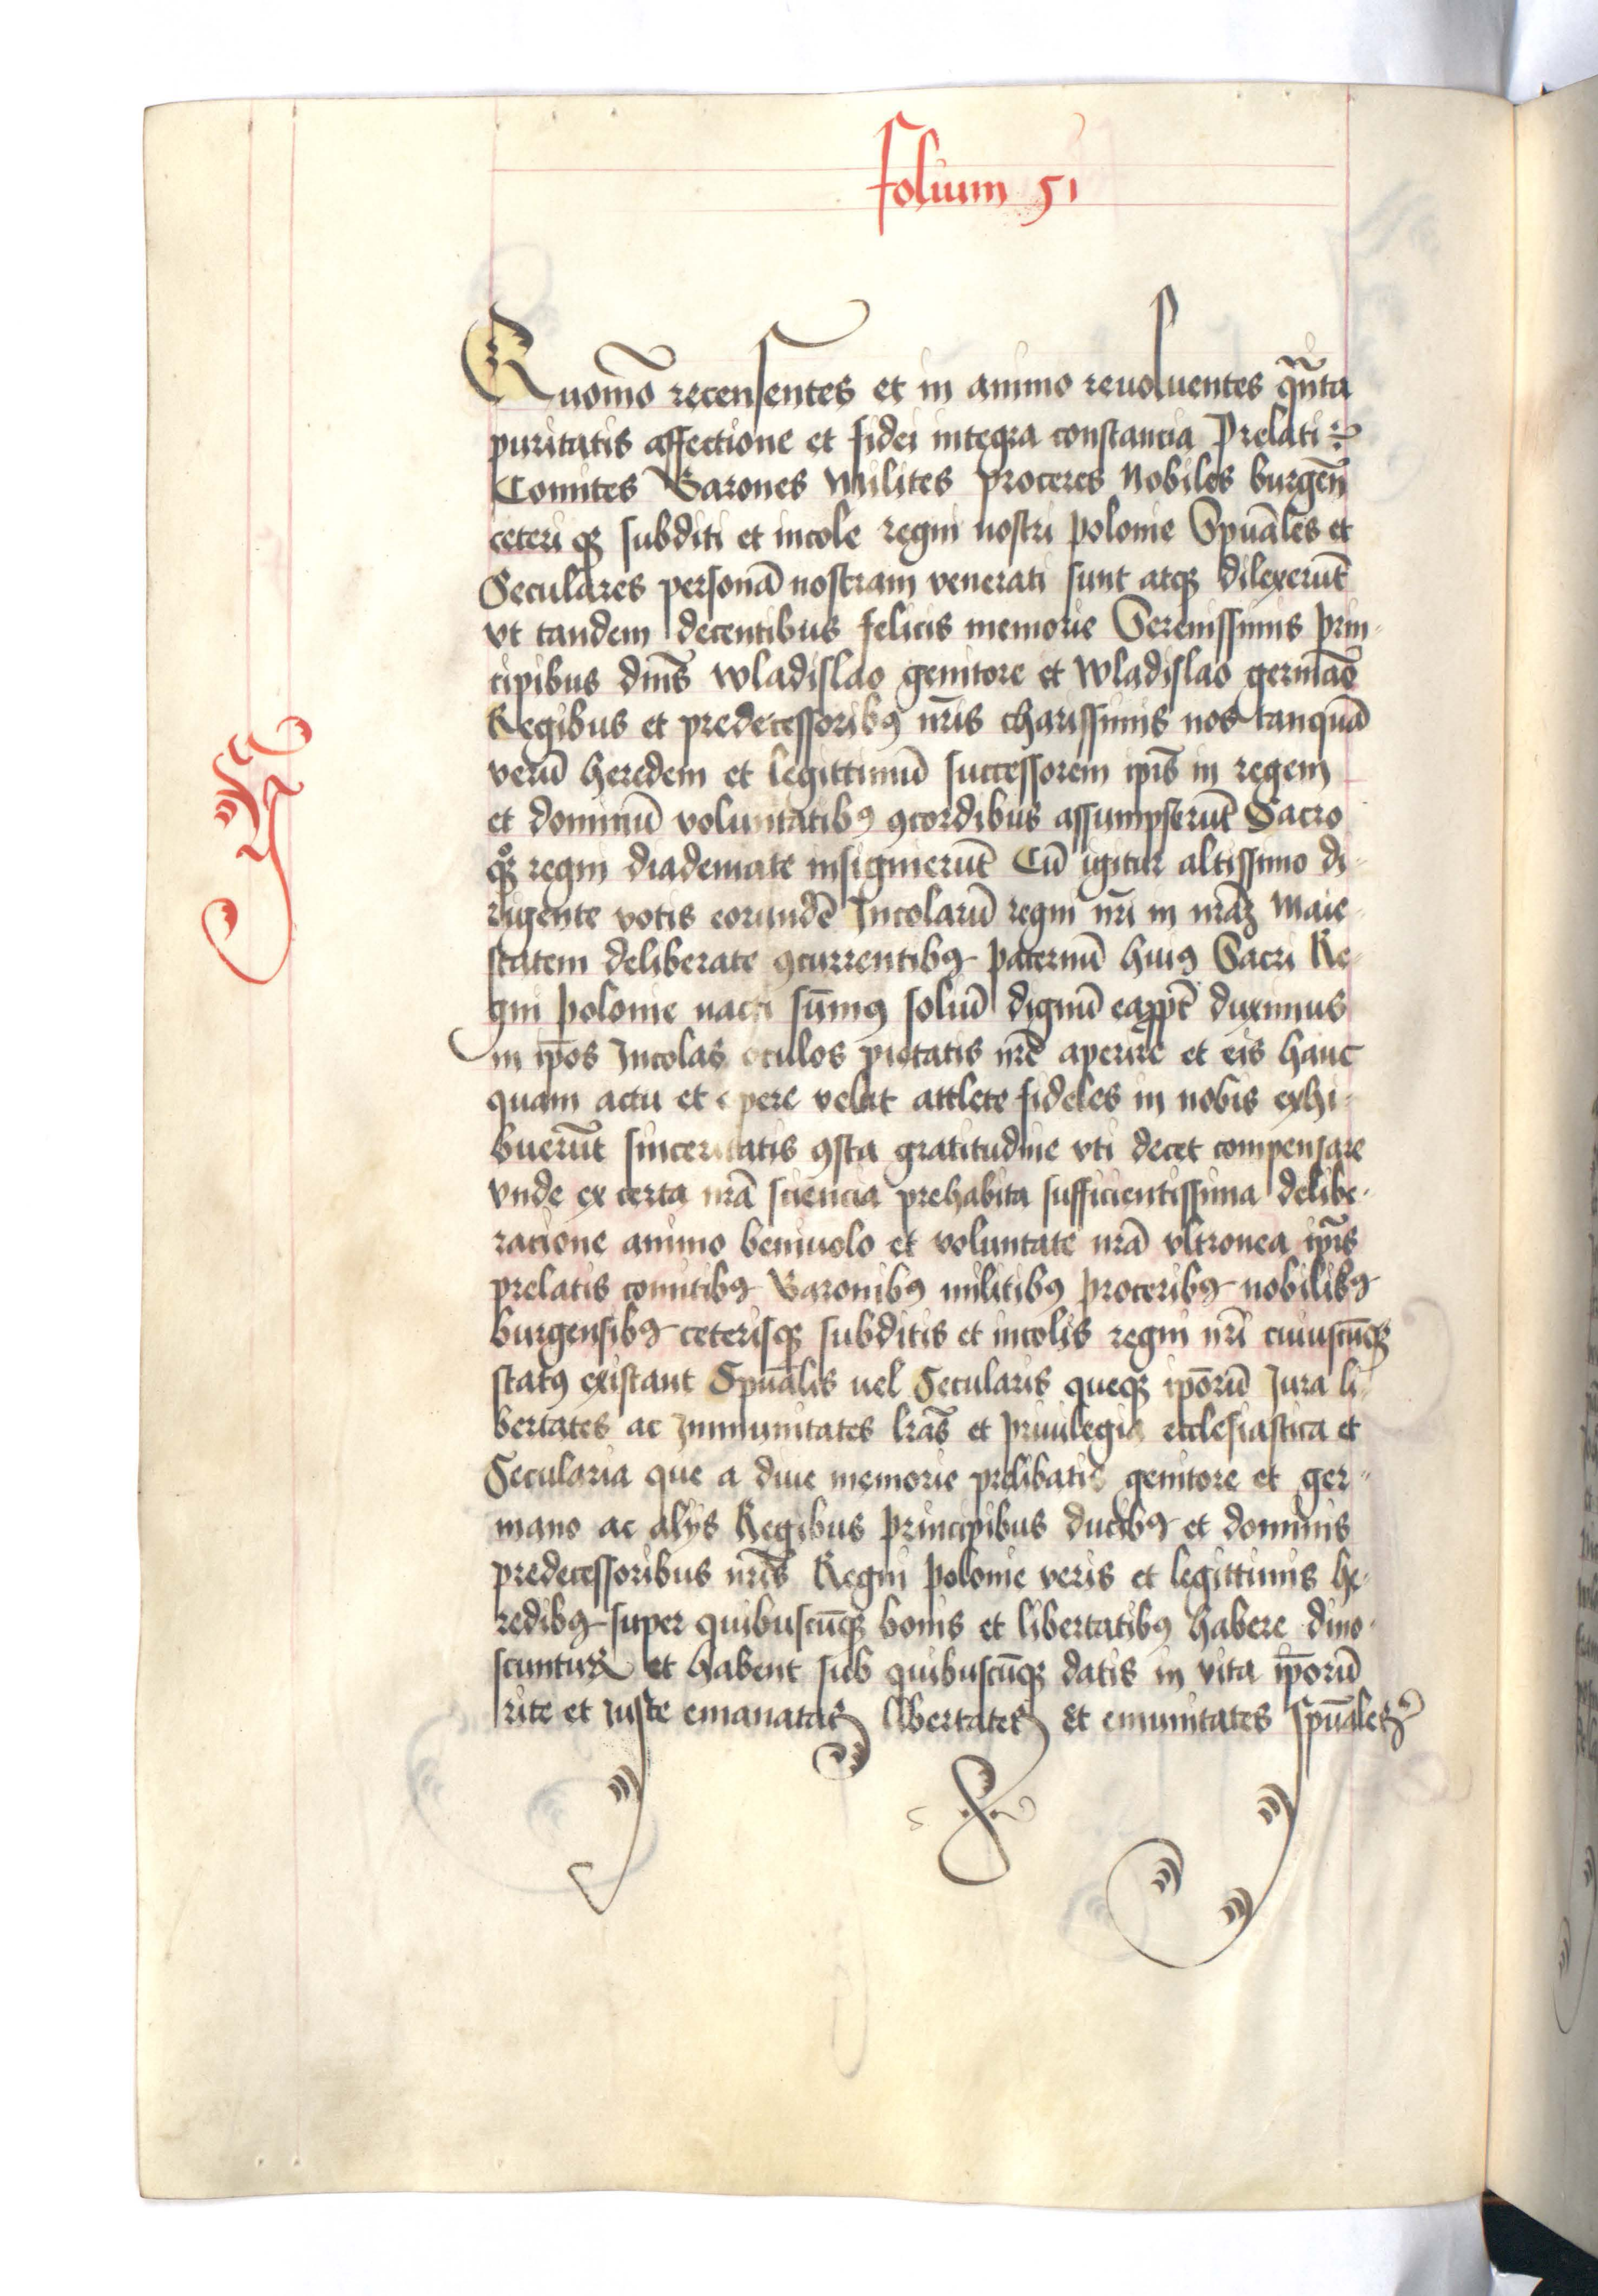 folium 51
Quomō recensentes et in animo reuoluentes q̄nta
puritatis affectione et fidei integra constancia Prelati
Comites Barones Milites proceres Nobiles burgen̄
ceteri qꝫ subditi et incole regni nostri polonie Spūales et
Seculares personā nostram venerati sunt atqꝫ dilexerūt
vt tandem decentibus felicis memorie Serenissimis prin-
cipibus dnīs wladislao genitore et wladislao germāo
Regibus et predecessoribꝯ nr̄is charissimis nos tanquā
verū heredem et legittimū successorem ip̄is in regem
et dominū voluntatibꝯ ꝯcordibus assumpserūt Sacro
qꝫ regni diademate insignierūt Cū igitur altissimo di-
rigente votis eorundē Incolarū regni nr̄i in nr̄aꝫ Maie-
statem deliberate ꝯcurrentibꝯ paternū huiꝯ Sacri Re-
gni polonie nacti sum̄ꝯ soliū dignū eapp̄t duximus
in ip̄os Incolas oculos pietatis nr̄e aperire et eis hanc
quam actu et opere velut attlete fideles in nobis exhi-
buerūt sinceritatis ꝯsta gratitudine vti decet compensare
vnde ex certa nr̄a sciencia prehabita sufficientissima delibe-
ratione animo beniuolo et voluntate nr̄a vltronea ip̄is
prelatis comitibꝯ Baronibꝯ militibꝯ proceribꝯ nobilibꝯ
burgensibꝯ ceterisqꝫ subditis et incolis regni nr̄i cuiuscūqꝫ
statꝯ existant Spūalis uel Secularis queqꝫ ip̄orū Jura li-
bertates ac Immunitates lr̄as et priuilegia ecclesiastica et
Secularia que a diue memorie prelibatis genitore et ger-
mano ac alijs Regibus principibus ducibꝯ et dominis
predecessoribus nr̄is Regni polonie veris et legittimis he-
redibꝯ super quibuscūqꝫ bonis et libertatibꝯ habere dino-
scuntur et habent sub quibuscūqꝫ datis in vita ip̄orū
rite et iuste emanatas libertates et emunitates spūales